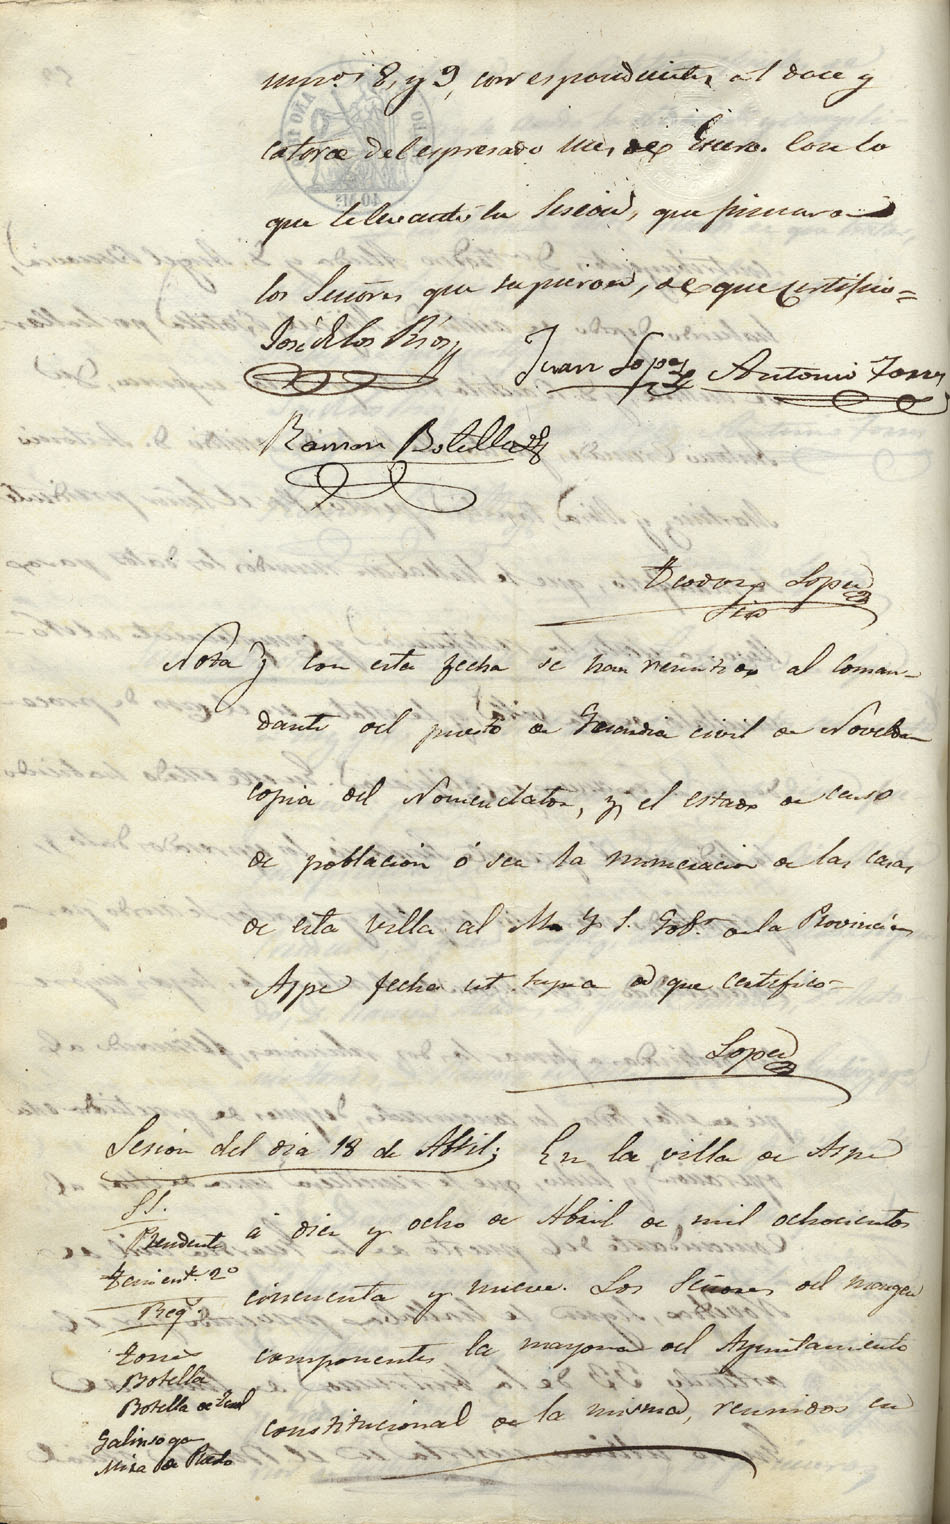 numos 8, y 9, correspondientes al doce y
catorce del espresado mes de Enero. Con lo
que se levantó la Sesion, que firmaron
los Señores que supieron, de que certifico=
José de los Rios
Juan Lopez
Antonio Torres
Ramon Botella
Teodoro Lopez
Srio
Nota } con esta fecha se han remitido al Coman-
dante del puesto de Guardia civil de Novelda
copia del Nomenclator, y el estado de censo
de poblacion ó sea la numeracion de las casas
de esta villa al M. Y. S. Gobr. de la Provincia
Aspe fecha ut supra de que certifico-
Lopez
Sesion del dia 18 de Abril; En la villa de Aspe
SS.
Presidente
Teniente 2º
Regr.
Torres
Botella
Botella de
Galinsoga
Mira de Prado
á diez y ocho de Abril de mil ochocientos
cincuenta y nueve. Los Señores del margen
componentes la mayoria del Ayuntamiento
constitucional de la misma, reunidos en